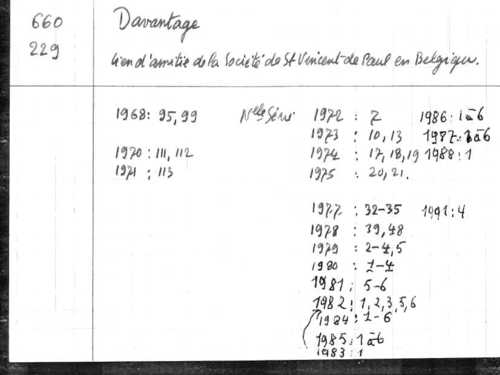 660 Davantage
229
Lien d'amitié de la Société de St Vincent de Paul en Belgique.
1968: 95, 99 Nelle Série 1972 : 7 1986 : 1 à 6
1973 : 10, 13 1987 : à 6
1970 : 111, 112 1974 : 17, 18, 19 1988 : 1
1971 : 113 1975 : 20, 21.
1977 : 32-35 1991 : 4
1978 : 39, 48
1979 : 2-4, 5
1980 : 1-4
1981 : 5-6
1982 : 1, 2, 3, 5, 6
1984 : 1-6
1985 : 1 à 6
1983 : 1